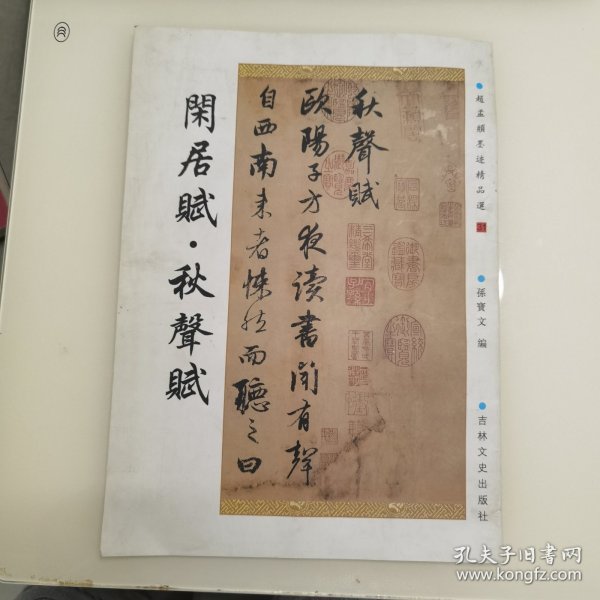 閑居賦·秋聲賦
秋聲賦
歐陽子方夜讀書聞有聲
自西南来者悚然而聽之曰
趙孟頫墨迹精品選 31
孫寶文 編
吉林文史出版社
孔夫子旧书网
www.kongfz.com